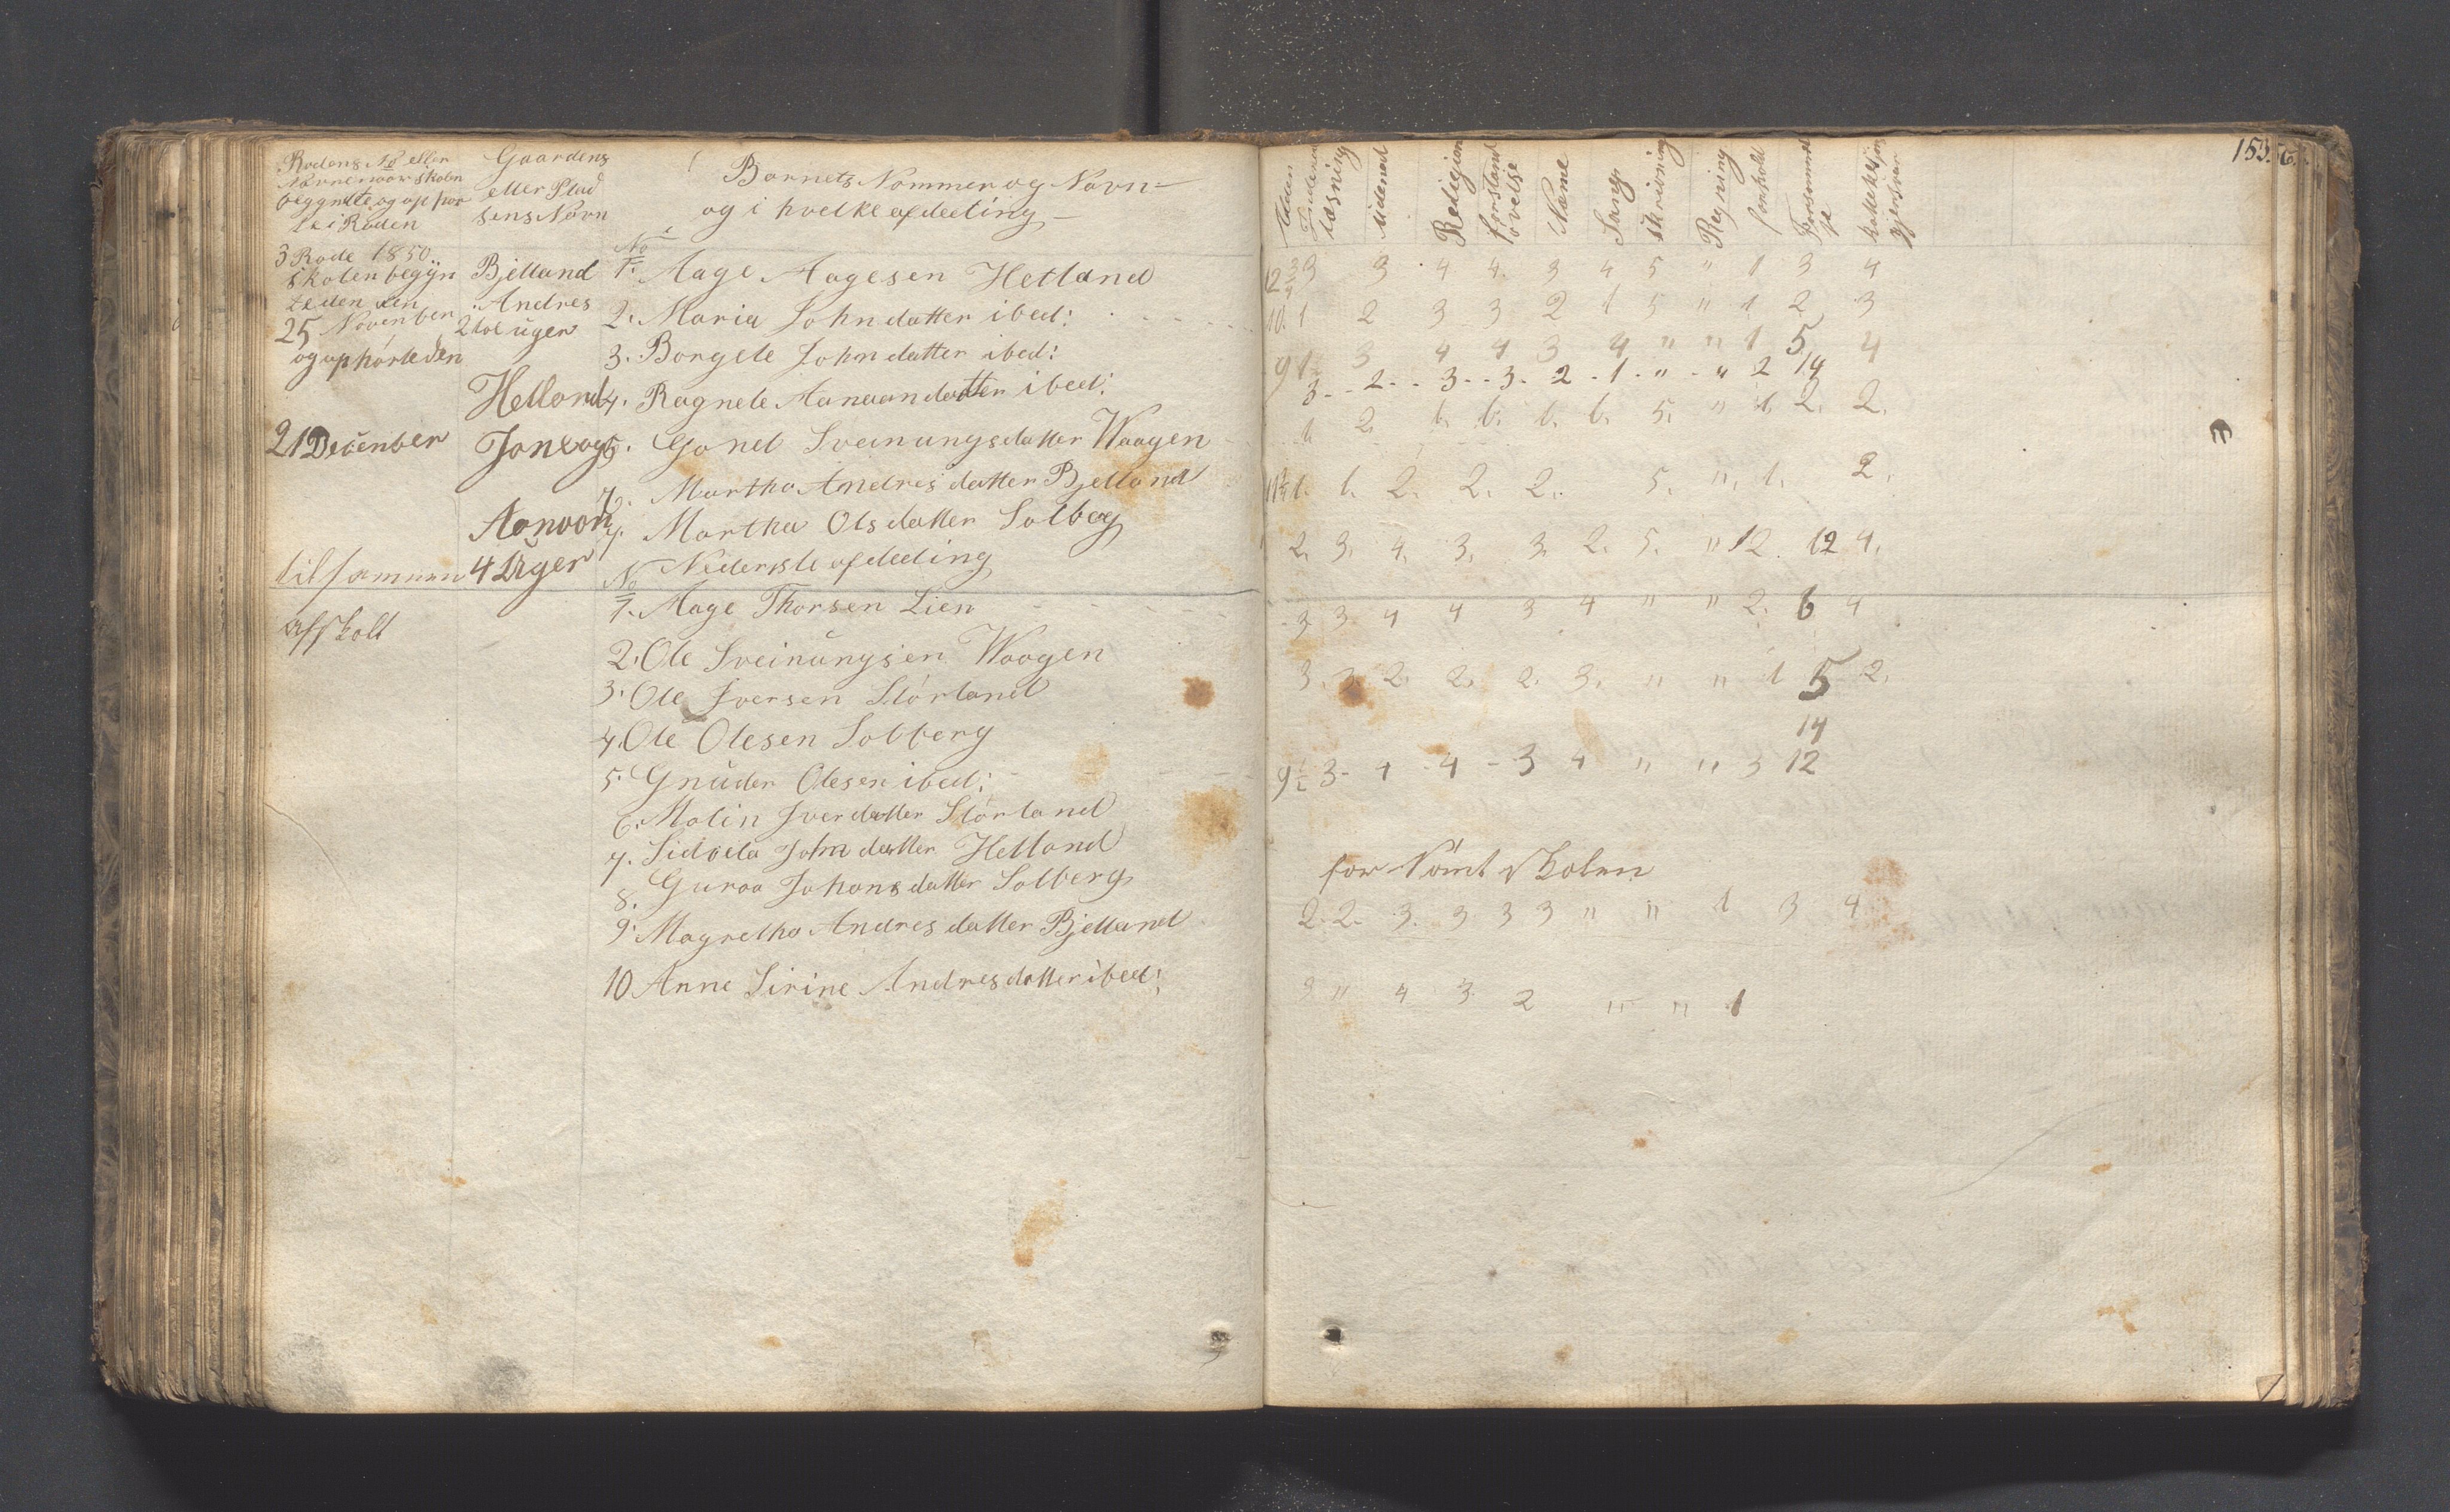 Rodens No eller
Navne naar skolen
begyndte og ophør
te i Roden
Gaardens
eller Plad
sens Navn
Barnets Nommer og Navn
og i hvelke afdeeling
3 Rode 1850
skolen begyn
te den den
25 November
og ophörte den
21 December
til sammen
afholt
Bjelland
Andres
2 uger
Helland
Aanaon
4 Uger
No
1. Aage Aagesen Hetland
2. Maria Johndatter ibed:
3. Borgele Johndatter ibed:
4. Ragnele Aanaandatter ibed:
5. Gonel Sveinungsdatter Waagen
Martha Andresdatter Bjelland
7. Martha Olsdatter Solbeg
No Nederste afdeeling
1. Aage Thorsen Lien
2. Ole Sveinungsen Waagen
3. Ole Iversen Störland
4. Ole Olesen Solberg
5. Gnuder Olesen ibed:
6. Malin Iverdatter Störland
7. Sidsela Johndatter Hetland
8. Guroa Johansdatter Solberg
9. Magretha Andresdatter Bjelland
10 Anne Sirine Andresdatter ibed:
153.
læsning
udenad
Religion
forstand
øvelse
Næme
Sang
skrivning
Regning
forhold
Forsømmel
se
12 3/4 3 3 4 4. 3 4 5 " 1 3 4
10. 1 2 3 3 2 1 5 " 1 2 3
9 1 3 4 4 3 4 " " 1 5 4
3 - 2 - 3 - 3 - 2 - 1 - " - " 2 14
1 2. 1. 1. 1. 1. 5. " 1. 2. 2.
11 1/2 1. 1. 2. 2. 2. 5. " 1. 2.
2. 3. 4. 3. 3. 2. 5. " 12. 12 4.
3 3 4 4 3 4 " " 2. 6 4
3. 3. 2. 2. 2. 3. " " 1 5 2.
14
9 1/2 3 - 4 - 4 - 3 4 " " 3 12
for Sömt skolen
2. 2. 3. 3 3 3 " " 1 3 4
3 " 4 3. 2 " " 1